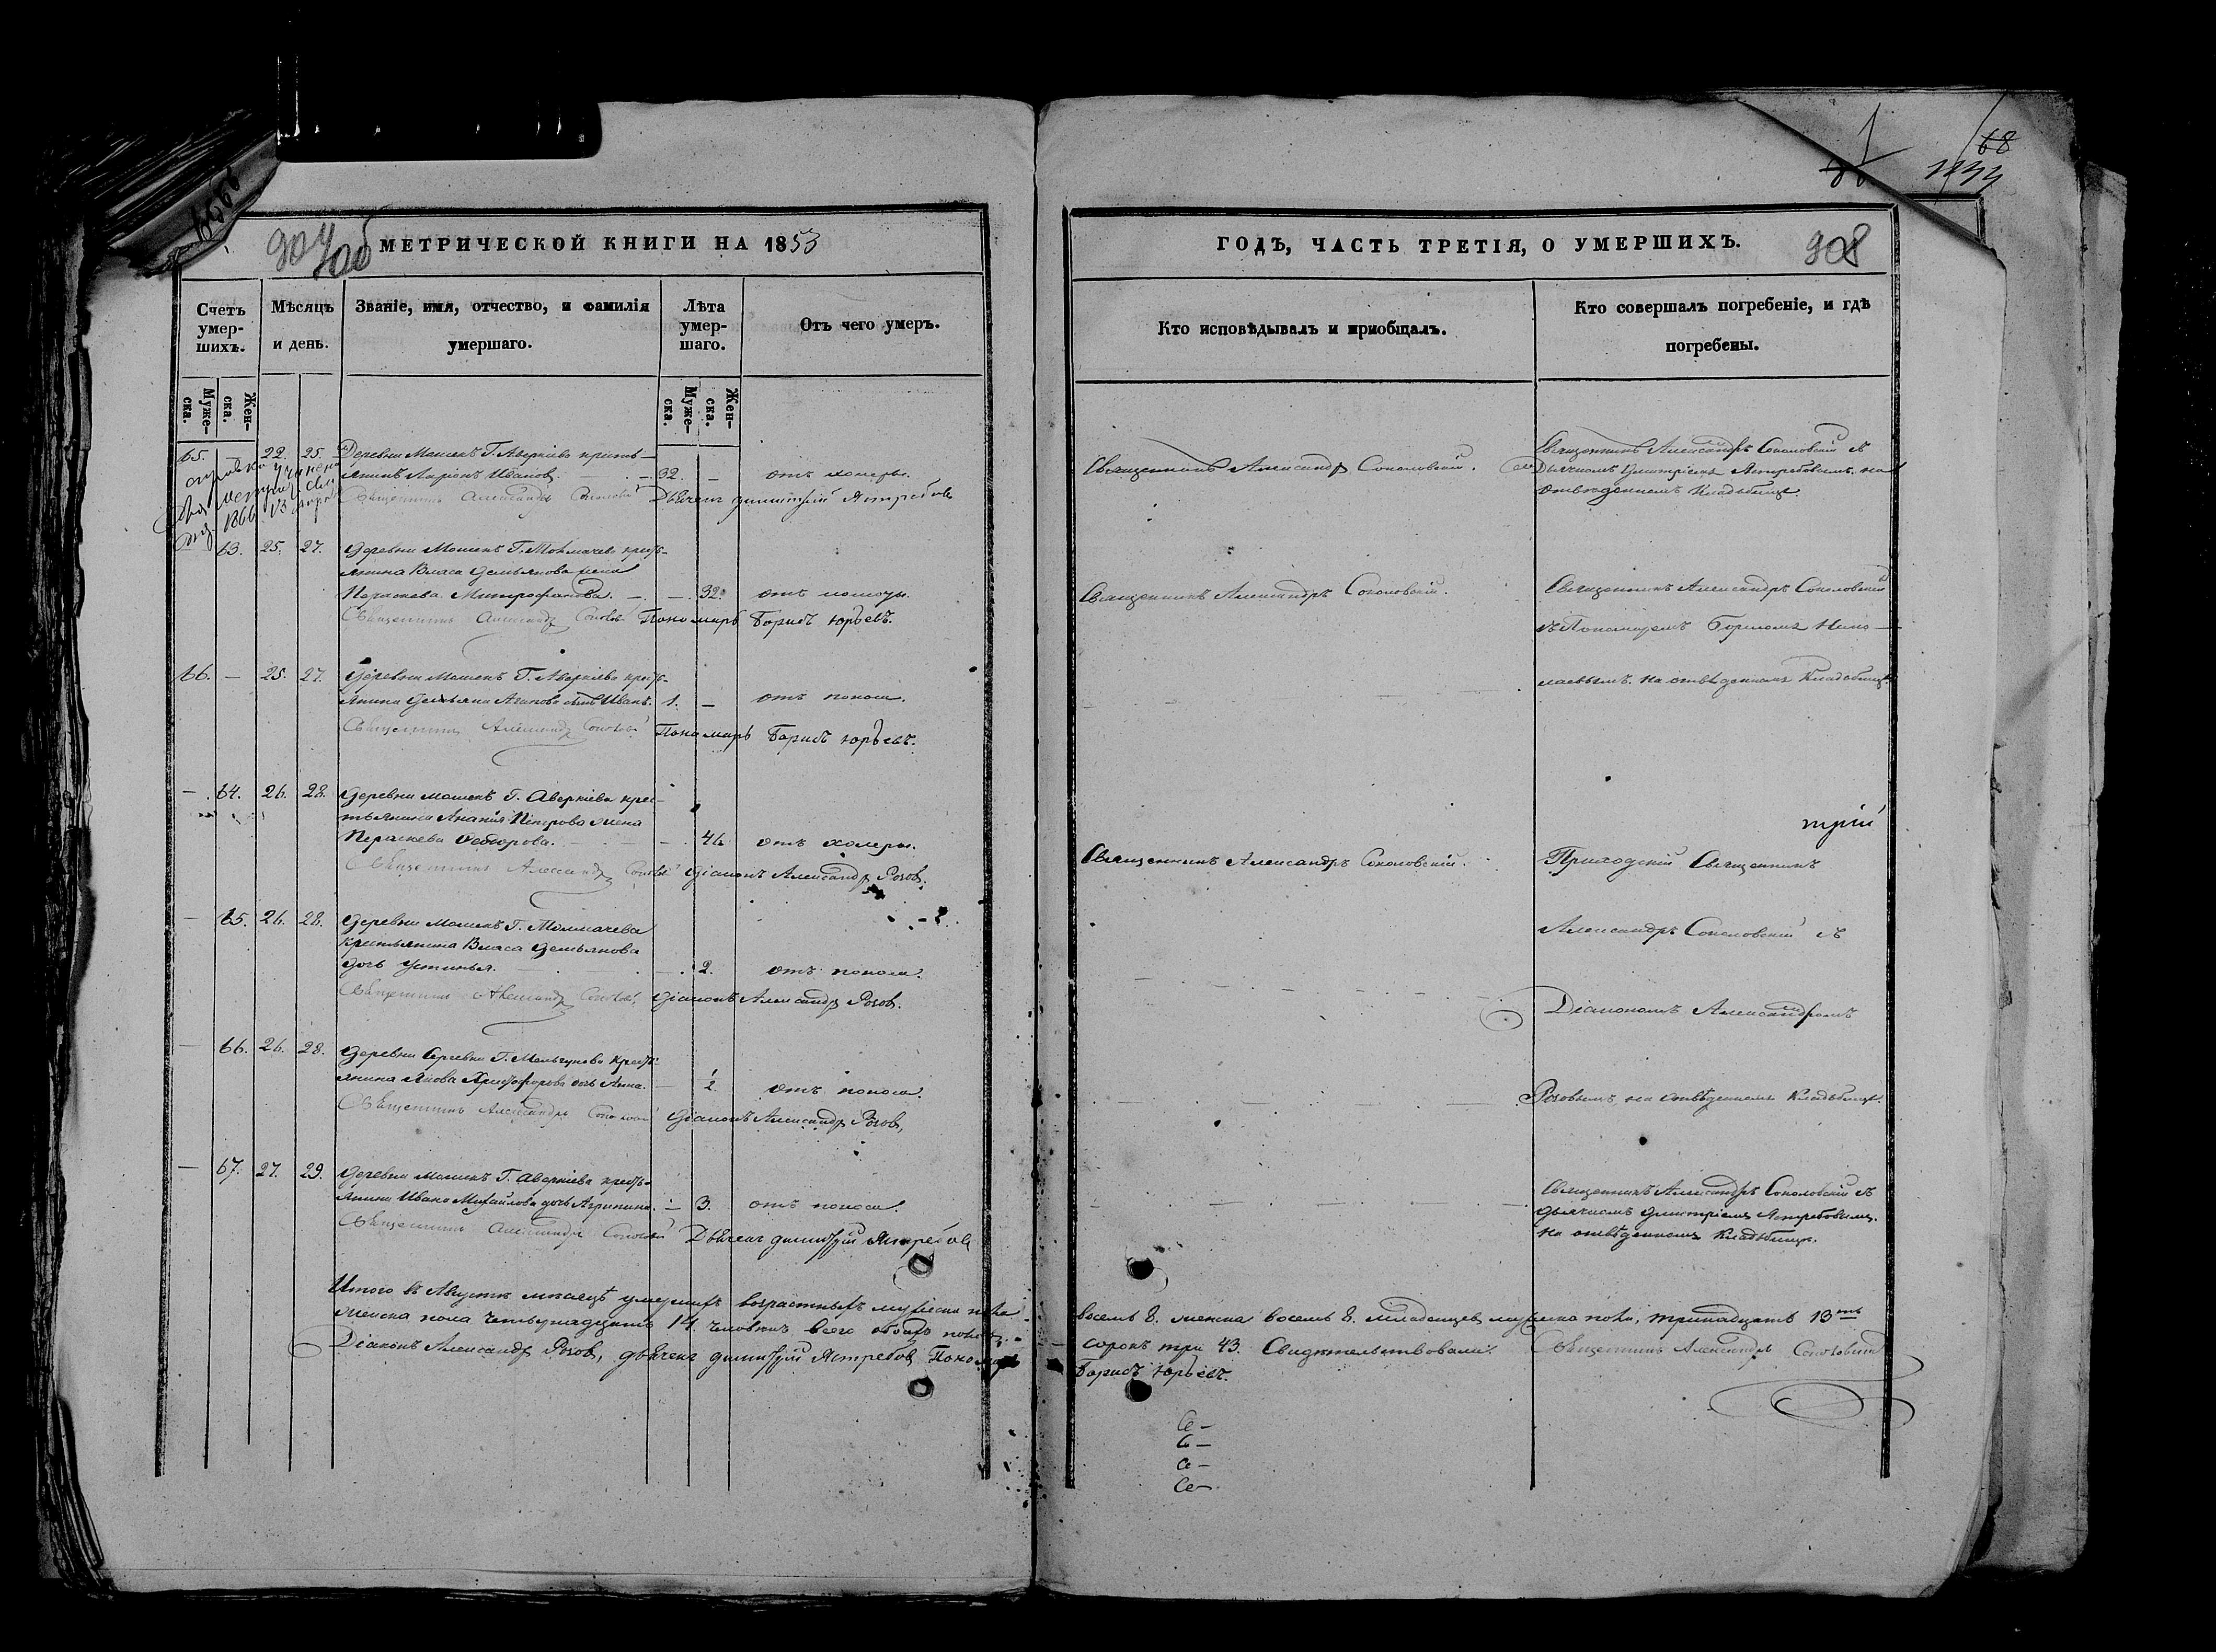 68
904
МЕТРИЧЕСКОЙ КНИГИ НА 1853
Счетъ умер-
шихъ.
Мѣсяцъ
и день.
Званіе, имя, отчество, и фамилія
умершаго.
Лѣта
умер-
шаго.
Отъ чего умеръ.
Муже-
ска.
Жен-
ска.
Муже-
ска.
Жен-
ска.
65. — 22. 25. Деревни Г. Аверкіева кресть-
янинъ Ларіонъ Ивановъ. — 32. — отъ холеры.
Священникъ Александръ Соколовскій Дьячекъ Димитрій Ястребовъ
справка
1866
63. 25. 27. Деревни Г. Толмачева кресть-
янина Власа Демьянова жена
Параскева Митрофанова. — — 32. отъ холеры.
Священникъ Александръ Соколов. Пономарь Борисъ Юрьевъ.
66. — 25. 27. Деревни Г. Аверкіева кресть-
янина Демьяна Агапова сынъ Иванъ. 1. — отъ поноса.
Священникъ Александръ Соколов. Пономарь Борисъ Юрьевъ.
— 64. 26. 28. Деревни Г. Аверкіева крес-
тьянина Ананія Петрова жена
Параскева Федорова. — — 46 отъ холеры.
Священникъ Александръ Соколов. Діаконъ Александръ Розовъ.
— 65. 26. 28. Деревни Г. Толмачева
крестьянина Власа Демьянова
дочь Устинья. — 2. отъ поноса.
Священникъ Александръ Соколов. Діаконъ Александръ Розовъ.
— 66. 26. 28. Деревни Г. Мельгунова кресть-
янина Якова Христофорова дочь Анна. — отъ поноса.
Священникъ Александръ Соколов. Діаконъ Александръ Розовъ,
— 67. 27. 29. Деревни Г. Аверкіева кресть-
янина Ивана Михайлова дочь Агрипина. — 3. отъ поноса.
Священникъ Александръ Соколов. Дьячекъ Димитрій Ястребовъ
Итого въ Августѣ мѣсяцѣ умершихъ возрастныхъ мужеска пола
женска пола четырнадцать 14. человѣкъ всего обоего пола
Діаконъ Александръ Розовъ, дьячекъ Димитрій Ястребовъ Пономарь
68
908
ГОДЪ, ЧАСТЬ ТРЕТІЯ, О УМЕРШИХЪ.
Кто исповѣдывалъ и пріобщалъ.
Кто совершалъ погребеніе, и гдѣ
погребены.
Священникъ Александръ Соколовскій.
Священникъ Александръ Соколовскій съ
Дьячкомъ Димитріемъ Ястребовымъ. на
отведенномъ Кладбищѣ.
Священникъ Александръ Соколовскій.
Священникъ Александръ Соколовскій
съ Пономаремъ Борисомъ Нико-
лаевымъ. на отведенномъ Кладбищѣ.
Священникъ Александръ Соколовскій.
Приходскій Священникъ
Александръ Соколовскій съ
Діакономъ Александромъ
Розовымъ, на отведенномъ Кладбищѣ.
Священникъ Александръ Соколовскій съ
дьячкомъ Димитріемъ Ястребовымъ.
на отведенномъ Кладбищѣ.
восемь 8. женска восемь 8. младенцевъ мужеска пола, тринадцать 13ть
сорокъ три 43. Свидѣтельствовали: Священникъ Александръ Соколовскій
Борисъ Юрьевъ.